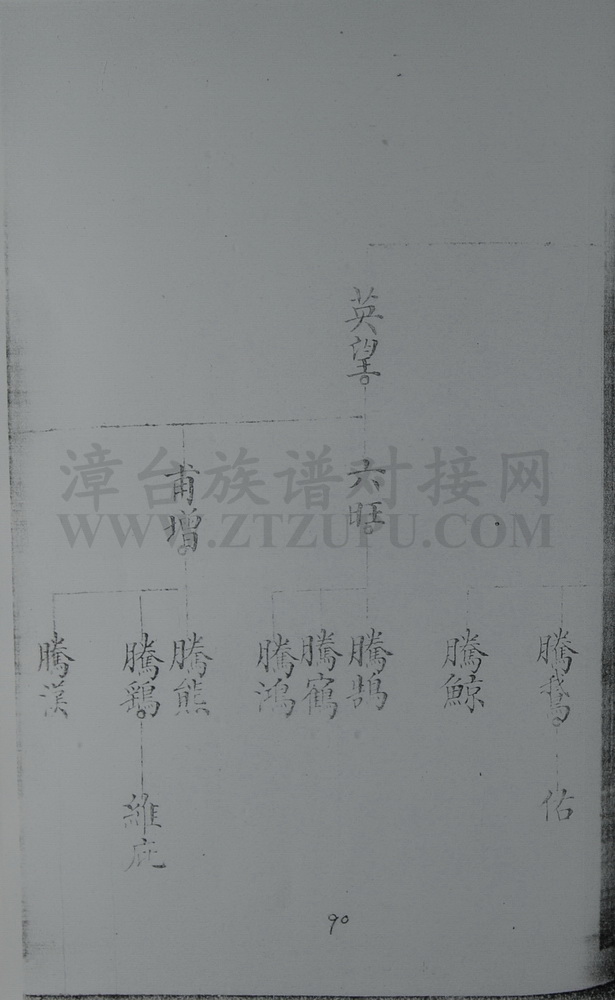 英望
六旺
甫增
騰鵝
騰鯨
騰鵠
騰鶴
騰鴻
騰熊
騰鶏
騰漢
佑
維庇
90
漳台族谱对接网
WWW.ZTZUPU.COM